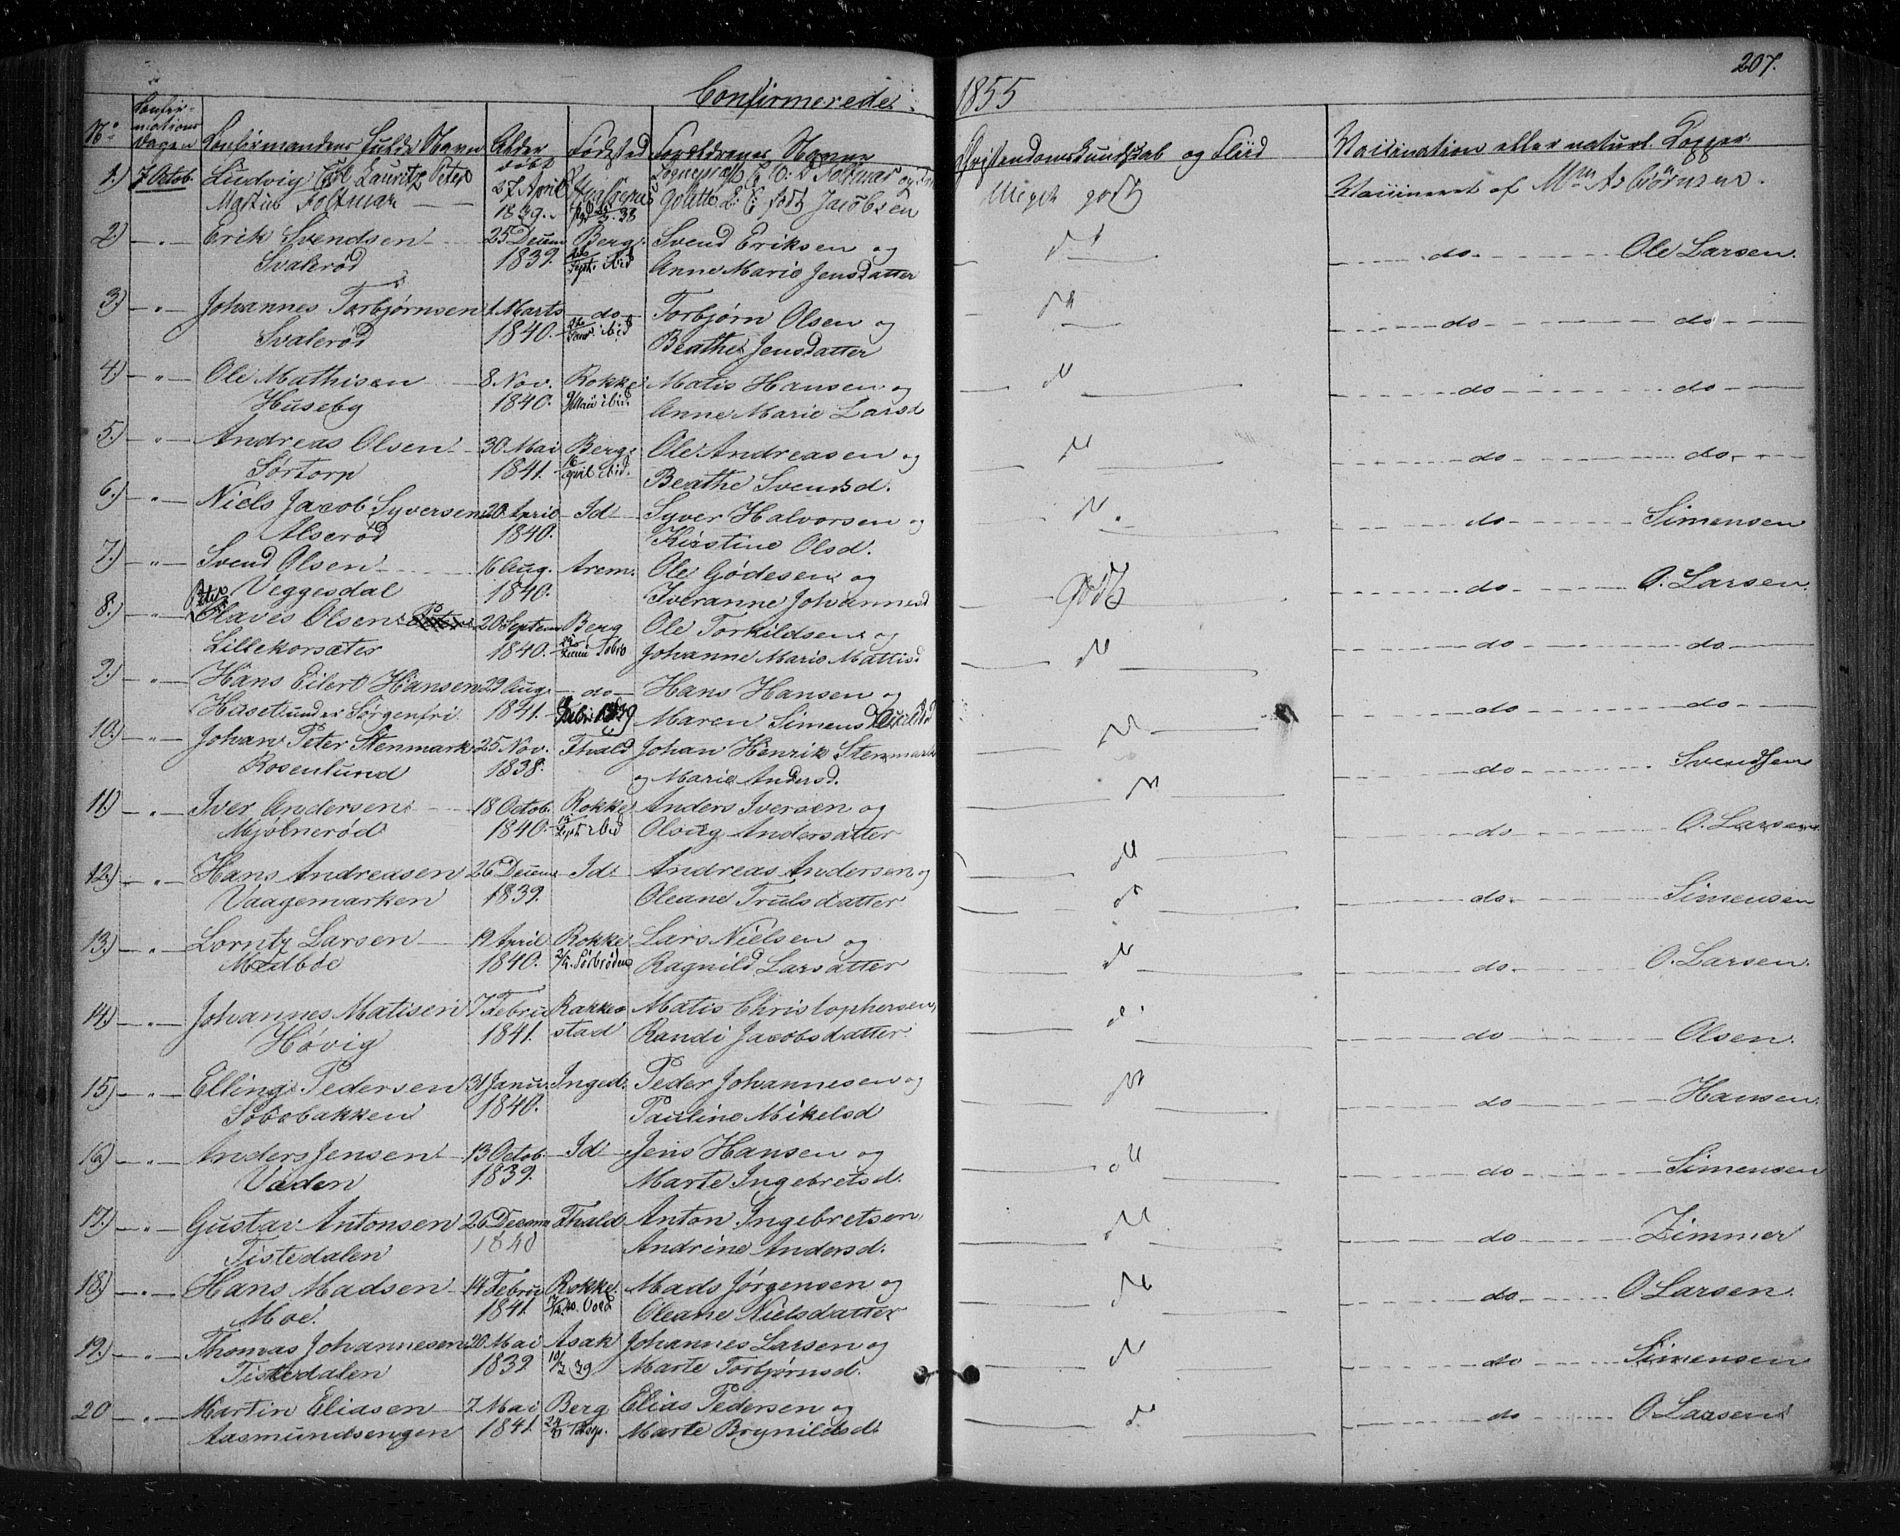 207.
Confirmerede 1855
No Confirmations dagen Confirmandens fulde Navn Alder Fødested Forældrenes Navne Christendomskundskab og Fliid Vaccination eller naturl. Kopper.
1.) 7 Octob. Ludvig Carl Lauritz Peter 27 April Meget godt Vaccineret af
Marius Foltmar 1839. Jacobsen
2.) — " — Erik Svendsen 25 Decem Berg. Svend Eriksen og do do Ole Larsen.
Svalerød 1839. Anne Marie Jensdatter
3.) — " — Johannes Torbjørnsen 1 Marts do Torbjørn Olsen og do do do
Svalerød 1840. Beathe Jensdatter
4.) — " — Ole Mathisen 8 Nov. Rokke Matis Hansen og do do do
Huseby 1840. Anne Marie Larsd
5.) — " — Andreas Olsen 30 Mai Berg. Ole Andreasen og do do do
Sørtorp 1841. Beathe Svensd.
6.) — " — Niels Jacob Syversen 20 April Id Syver Halvorsen og do do Simensen
Alserød 1840. Kirstine Olsd.
7.) — " — Svend Olsen 16 Aug. Arem. Ole Gødesen og godt do O. Larsen
Veggesdal 1840. Iveranne Johannesd
8.) — " — Olaves Olsen 20 Septem Berg Ole Torkildsen og do do do
Lillekorsæter 1840. Johanne Marie Mattisd
9.) — " — Hans Eilert Hansen 29 Aug. do Hans Hansen og do do
Huset under Sørgenfri 1841. Maren Simensd
10.) — " — Johan Peter Stenmark 25 Nov. Fhald Johan Henrik Stenmark do do Svendsen
Rosenlund 1838. og Marie Andersd.
11.) — " — Iver Andersen 18 Octob. Rokke Anders Iversen og do do O. Larsen
Mjølnerød 1840. Oloug Andersatter
12.) — " — Hans Andreasen 26 Decem Id Andreas Andersen og do do Simensen
Vaagemarken 1839. Oleane Trulsdatter
13.) — " — Lorntz Larsen 19 April Rokke Lars Nielsen og do do O. Larsen.
Medbøe 1840. Sørbrøden Ragnild Larsatter
14.) — " — Johannes Matisen 7 Febru Rakke Matis Christophersen, do do Olsen.
Høvig 1841. stad Randi Jacobsdatter
15.) — " — Elling Pedersen 31 Janu. Inged. Peder Johannesen og do do Hansen
Sobobakken 1840. Pauline Mikelsd
16.) — " — Anders Jensen 13 Octob Id Jens Hansen og do do Simensen
Vaden 1839. Marte Ingebretsd.
17.) — " — Gustav Antonsen 26 Decem Fhald Anton Ingebretsen do do Zimmer
Tistedalen 1840 Andrine Andersd.
18.) — " — Hans Madsen 14 Febru Rokke Mads Jørgensen og do do O Larsen.
Moe. 1841. Oleane Nielsdatter
19.) — " — Thomas Johannesen 20 Mai Asak Johannes Larsen og do do Simensen
Tistedalen 1839 10/3 39 Marte Torbjørnsd.
20 — " — Martin Eliasen 7 Mai Berg Elias Pedersen og do do O. Larsen
Aasmundsengen 1841. Marte Brynildsd.